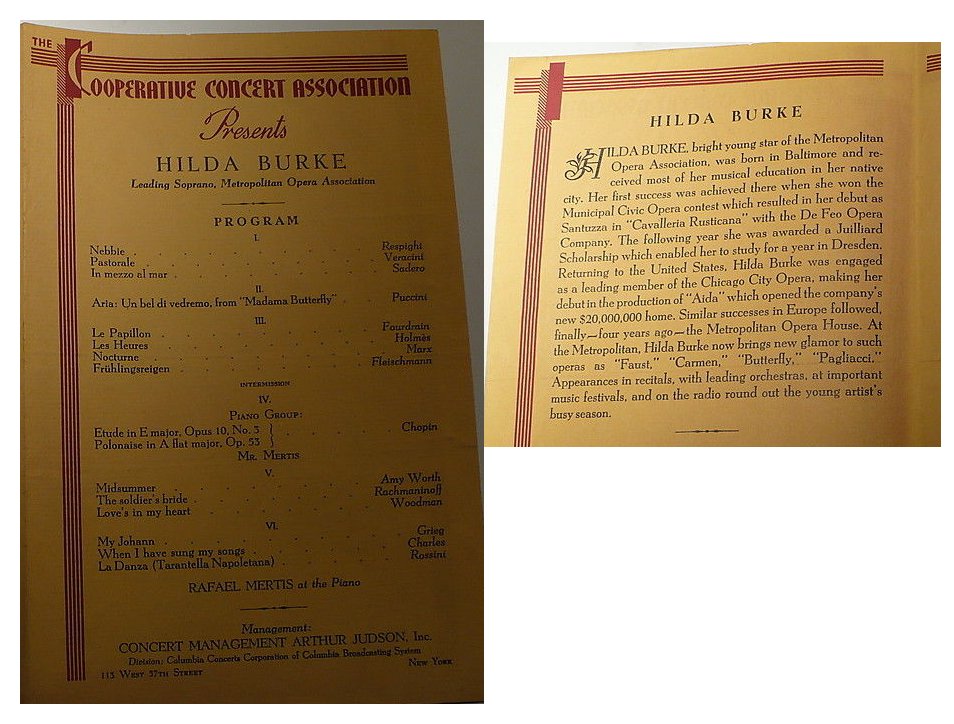 THE
COOPERATIVE CONCERT ASSOCIATION
Presents
HILDA BURKE
Leading Soprano, Metropolitan Opera Association
PROGRAM
I.
Nebbie . . . . . . . . Respighi
Pastorale . . . . . . . . Veracini
In mezzo al mar . . . . . . . . Sadero
II.
Aria: Un bel di vedremo, from "Madama Butterfly" . . Puccini
III.
Le Papillon . . . . . . . . Fourdrain
Les Heures . . . . . . . . Holmès
Nocturne . . . . . . . . Marx
Frühlingsreigen . . . . . . . . Fleischmann
INTERMISSION
IV.
PIANO GROUP:
Etude in E major, Opus 10, No. 3
Polonaise in A flat major, Op. 53 } . . . . Chopin
MR. MERTIS
V.
Midsummer . . . . . . . . Amy Worth
The soldier's bride . . . . . . . . Rachmaninoff
Love's in my heart . . . . . . . . Woodman
VI.
My Johann . . . . . . . . Grieg
When I have sung my songs . . . . . . Charles
La Danza (Tarantella Napoletana) . . . . . . Rossini
RAFAEL MERTIS at the Piano
Management:
CONCERT MANAGEMENT ARTHUR JUDSON, Inc.
Division: Columbia Concerts Corporation of Columbia Broadcasting System
113 WEST 57TH STREET NEW YORK
HILDA BURKE
HILDA BURKE, bright young star of the Metropolitan
Opera Association, was born in Baltimore and re-
ceived most of her musical education in her native
city. Her first success was achieved there when she won the
Municipal Civic Opera contest which resulted in her debut as
Santuzza in "Cavalleria Rusticana" with the De Feo Opera
Company. The following year she was awarded a Juilliard
Scholarship which enabled her to study for a year in Dresden.
Returning to the United States, Hilda Burke was engaged
as a leading member of the Chicago City Opera, making her
debut in the production of "Aida" which opened the company's
new $20,000,000 home. Similar successes in Europe followed,
finally—four years ago—the Metropolitan Opera House. At
the Metropolitan, Hilda Burke now brings new glamor to such
operas as "Faust," "Carmen," "Butterfly," "Pagliacci,"
Appearances in recitals, with leading orchestras, at important
music festivals, and on the radio round out the young artist's
busy season.